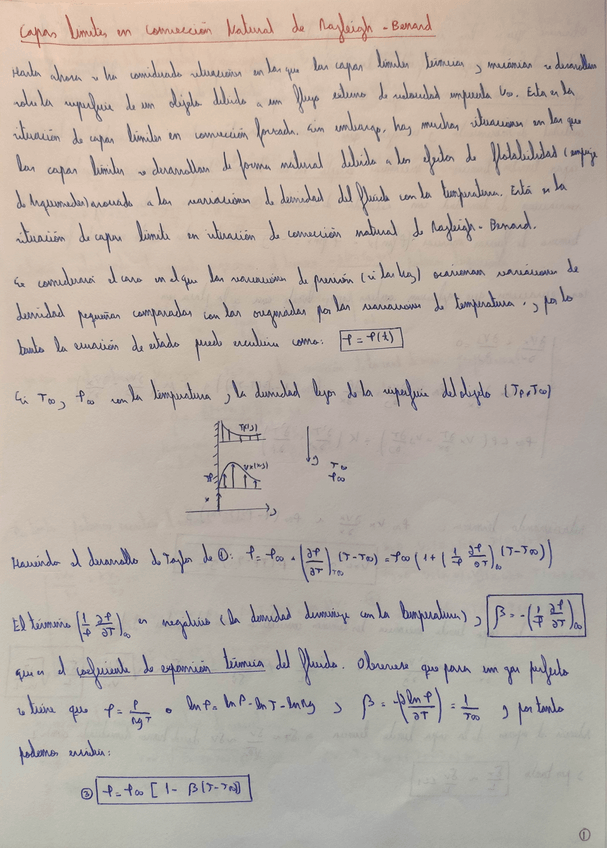 Capas límites en convección Natural de Rayleigh - Benard
Hasta ahora se ha considerado situaciones en las que las capas límites térmicas y mecánicas se desarrollan
sobre la superficie de un objeto debido a un flujo externo de velocidad impuesta U∞. Esta es la
situación de capas límites en convección forzada. Sin embargo, hay muchas situaciones en las que
las capas límites se desarrollan de forma natural debido a los efectos de flotabilidad (empuje
de Arquímedes) asociado a las variaciones de densidad del fluido con la temperatura. Está es la
situación de capas límite en situación de convección natural de Rayleigh - Benard.
Se considerará el caso en el que las variaciones de presión (si las hay) ocasionan variaciones de
densidad pequeñas comparadas con las originadas por las variaciones de temperatura, y por lo
tanto la ecuación de estado puede escribirse como: ρ = ρ(t)
Si T∞, ρ∞ son la temperatura y la densidad lejos de la superficie del objeto (Tp≠T∞)
T(x,y)
Vx(x,y)
Tp
x
y
g
T∞
ρ∞
Haciendo el desarrollo de Taylor de ①: ρ = ρ∞ + (∂ρ/∂T)T∞ (T-T∞) = ρ∞ (1 + (1/ρ ∂ρ/∂T)∞ (T-T∞))
El término (1/ρ ∂ρ/∂T)∞ es negativo (la densidad disminuye con la temperatura) y β = -(1/ρ ∂ρ/∂T)∞
que es el coeficiente de expansión térmica del fluido. Obsérvese que para un gas perfecto
se tiene que ρ = P/RgT o lnρ = lnP - lnT - lnRg y β = -(∂lnρ/∂T) = 1/T∞ y por tanto
podemos escribir:
③ ρ = ρ∞ [1 - β(T-T∞)]
①